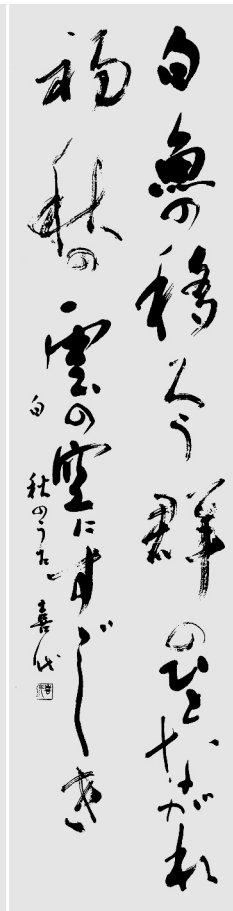 白魚の移ろう群のひとながれ
初秋の雲の空にすゞしき
白秋のうた 喜代